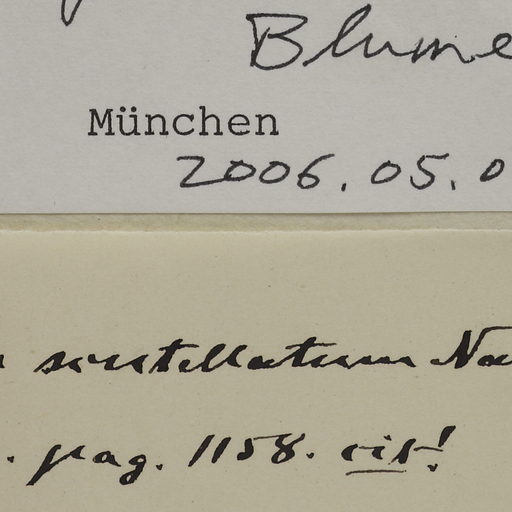 Blume
München
2006.05.0
scutellatum Na
. pag. 1158. cit!